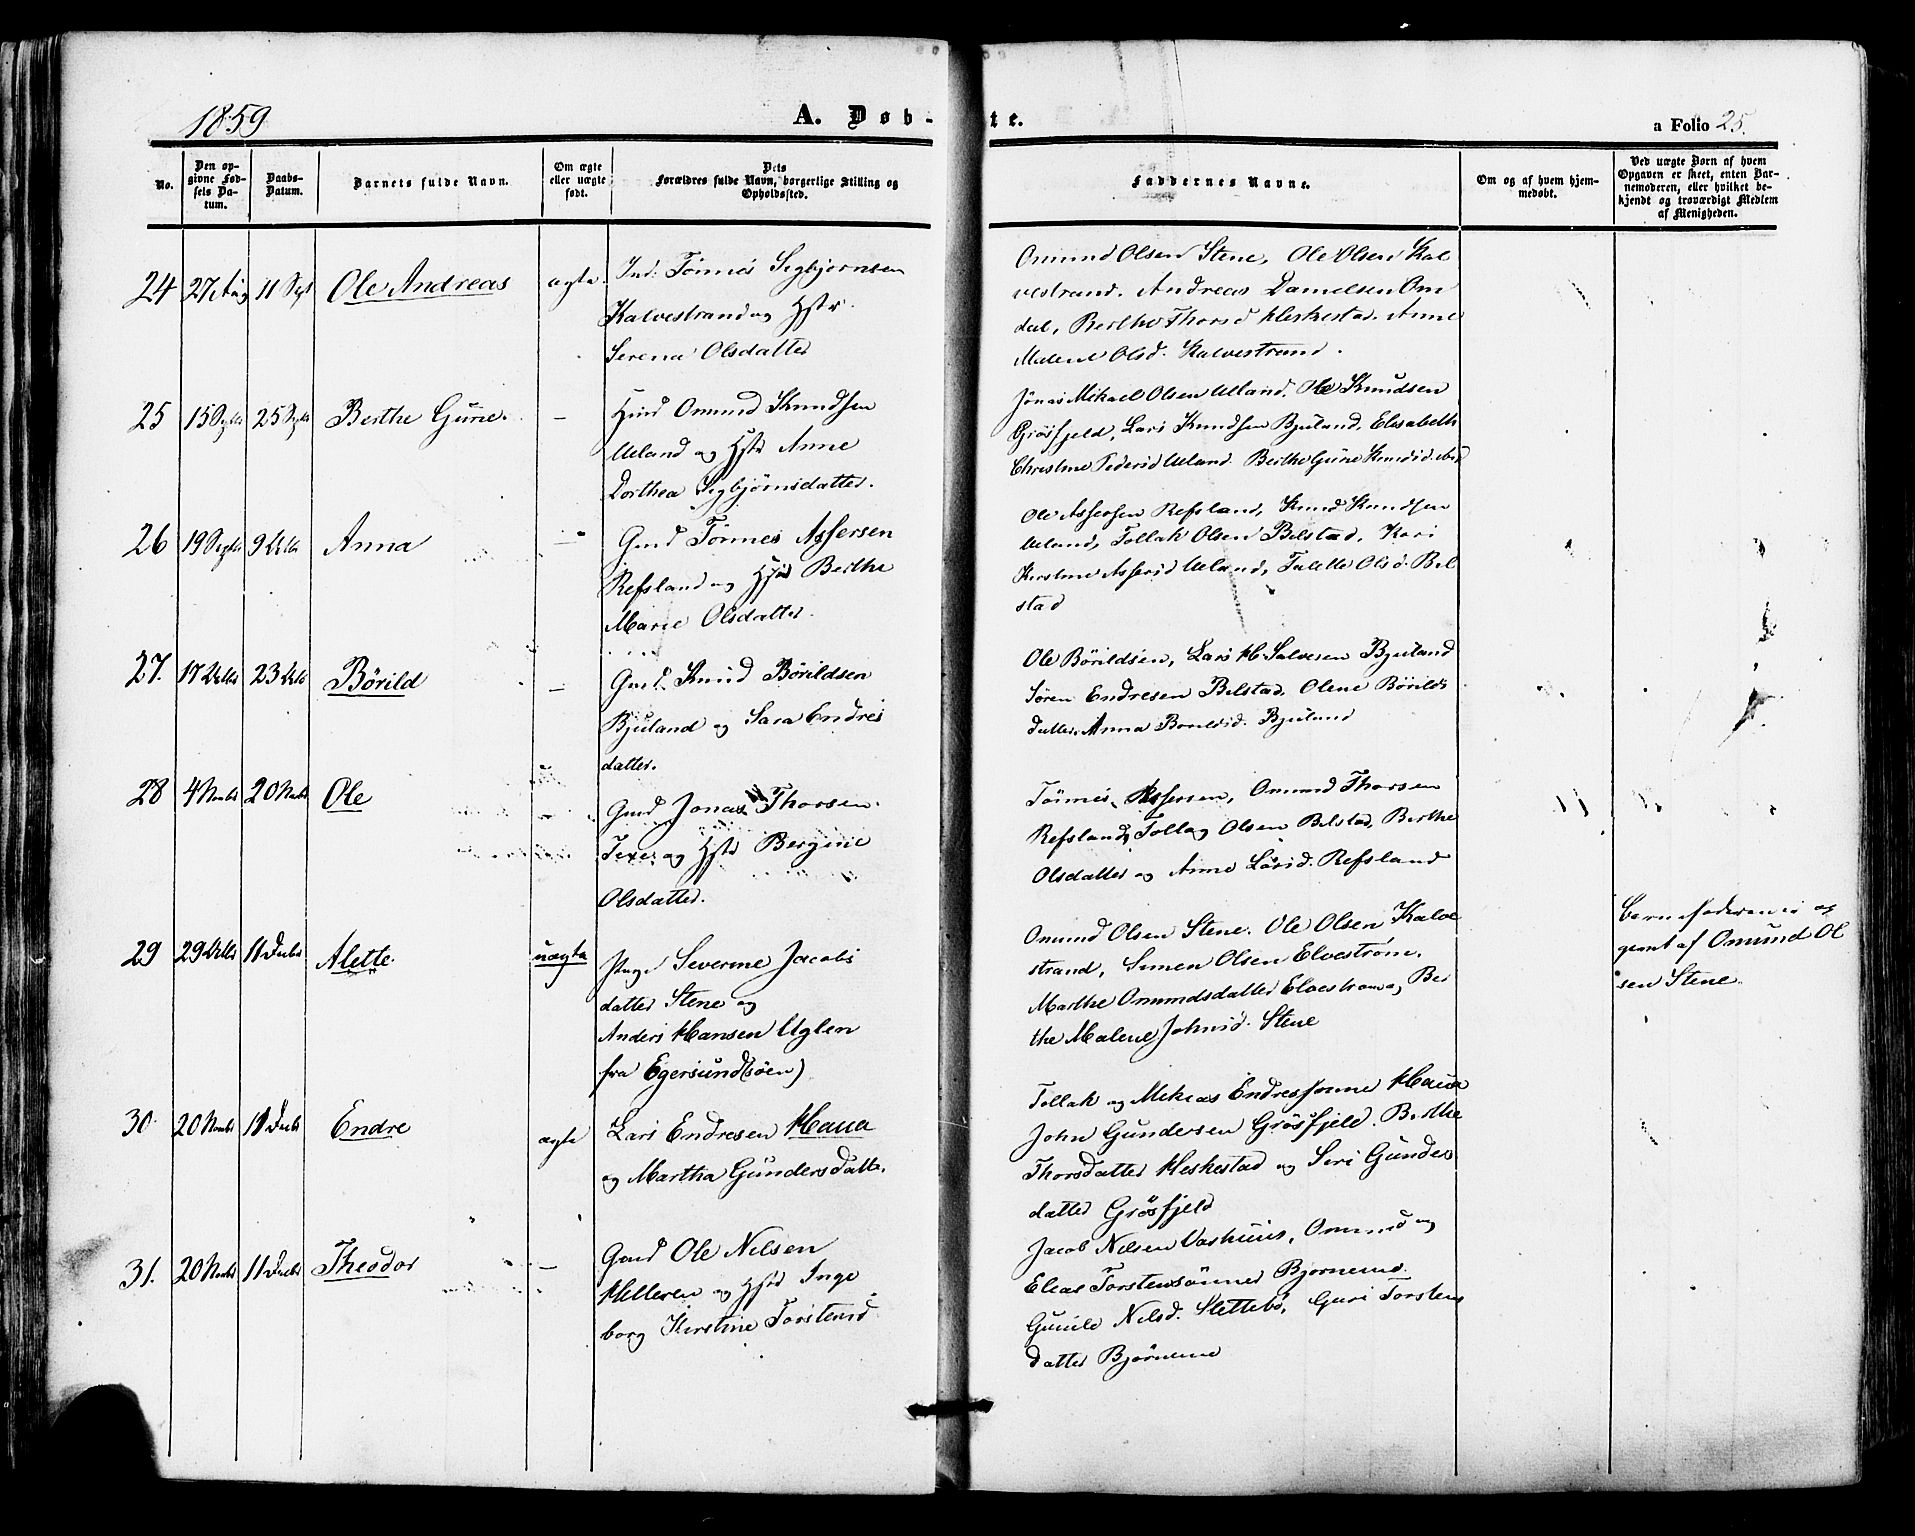 1859
A. Døb-
te.
a Folio 25.
No.
Den op-
givne Fød-
sels Da-
tum.
Daabs-
Datum.
Barnets fulde Navn.
Om ægte
eller uægte
født.
Dets
Forældres fulde Navn, borgerlige Stilling og
Opholdssted.
Faddernes Navne.
Om og af hvem hjem-
medøbt.
Ved uægte Børn af hvem
Opgaven er skeet, enten Bar-
nemoderen, eller hvilket be-
kjendt og troværdigt Medlem
af Menigheden.
24 27 Aug 11 Sept Ole Andreas ægte
Ind: Tönnes Segbjörnsen
Kalvestrand og Hstr
Serena Olsdatter
Omund Olsen Stene, Ole Olsen Kal
vestrand. Andreas Danielsen Om
dal, Berthe Thorsd Heskestad. Anne
Malene Olsd. Kalvestrand.
25 15 Septbr 25 Septbr Berthe Gurie. —
Omund Knudsen
Ueland og Hstr Anne
Dorthea Segbjörnsdatter.
Jonas Mikael Olsen Ueland, Ole Knudsen
Grösfjeld, Lars Knudsen Bjuland, Elisabeth
Christine Pedersd Ueland. Berthe Gurie Knudsd.
26 19 Septbr 9 Anna —
Gmd Tönnes Assersen
Refsland og Hstr Berthe
Marie Olsdatter.
Ole Assersen Refsland, Knud Knudsen
Ueland, Tollak Olsen Bilstad, Kari
Kirstine Assersd Ueland, Talette Olsd. Bil
stad
27. 17 23 Börild —
Gmd. Knud Börildsen
Bjuland og Sara Endres
datter.
Ole Börildsen, Lars H. Salvesen Bjuland
Sören Endresen Bilstad, Olene Börilds
datter, Anna Borildsd. Bjuland
28 4 Novbr 20 Novbr Ole —
Gmd Jonas Thorsen
Texe og Hstr Bergine
Olsdatter.
Tönnes Assersen, Omund Thorsen
Refsland, Tollag Olsen Bilstad, Berthe
Olsdatter og Anne Larsd. Refsland
29 29 11 Decbr Alette. uægte
Pige Severine Jacobs
datter Stene og
Anders Hansen Uglen
fra Egersund (söen)
Omund Olsen Stene. Ole Olsen Kalve
strand, Simen Olsen Elvestrøm,
Marthe Omundsdatter Elvestrøm og Ber
the Malene Johnsd. Stene
Barnefaderen er op
givet af Omund Ol
sen Stene.
30. 20 Novbr 11 Decbr Endre ægte
Lars Endresen Haua
og Martha Gundersdatter.
Tollak og Mikias Endressønne Haua
John Gundersen Grösfjeld. Berthe
Thorsdatter Heskestad og Siri Gunders
datter Grösfjeld
31. 20 Novbr 11 Decbr Theodor —
Gmd Ole Nilsen
Helleren og Hstr Inge
borg Kirstine Torstensd
Jacob Nilsen Vashuus, Omund og
Elias Torstensönner Bjørnemo.
Gunild Nilsd. Slettebö, Guri Torstens
datter Bjørnemo